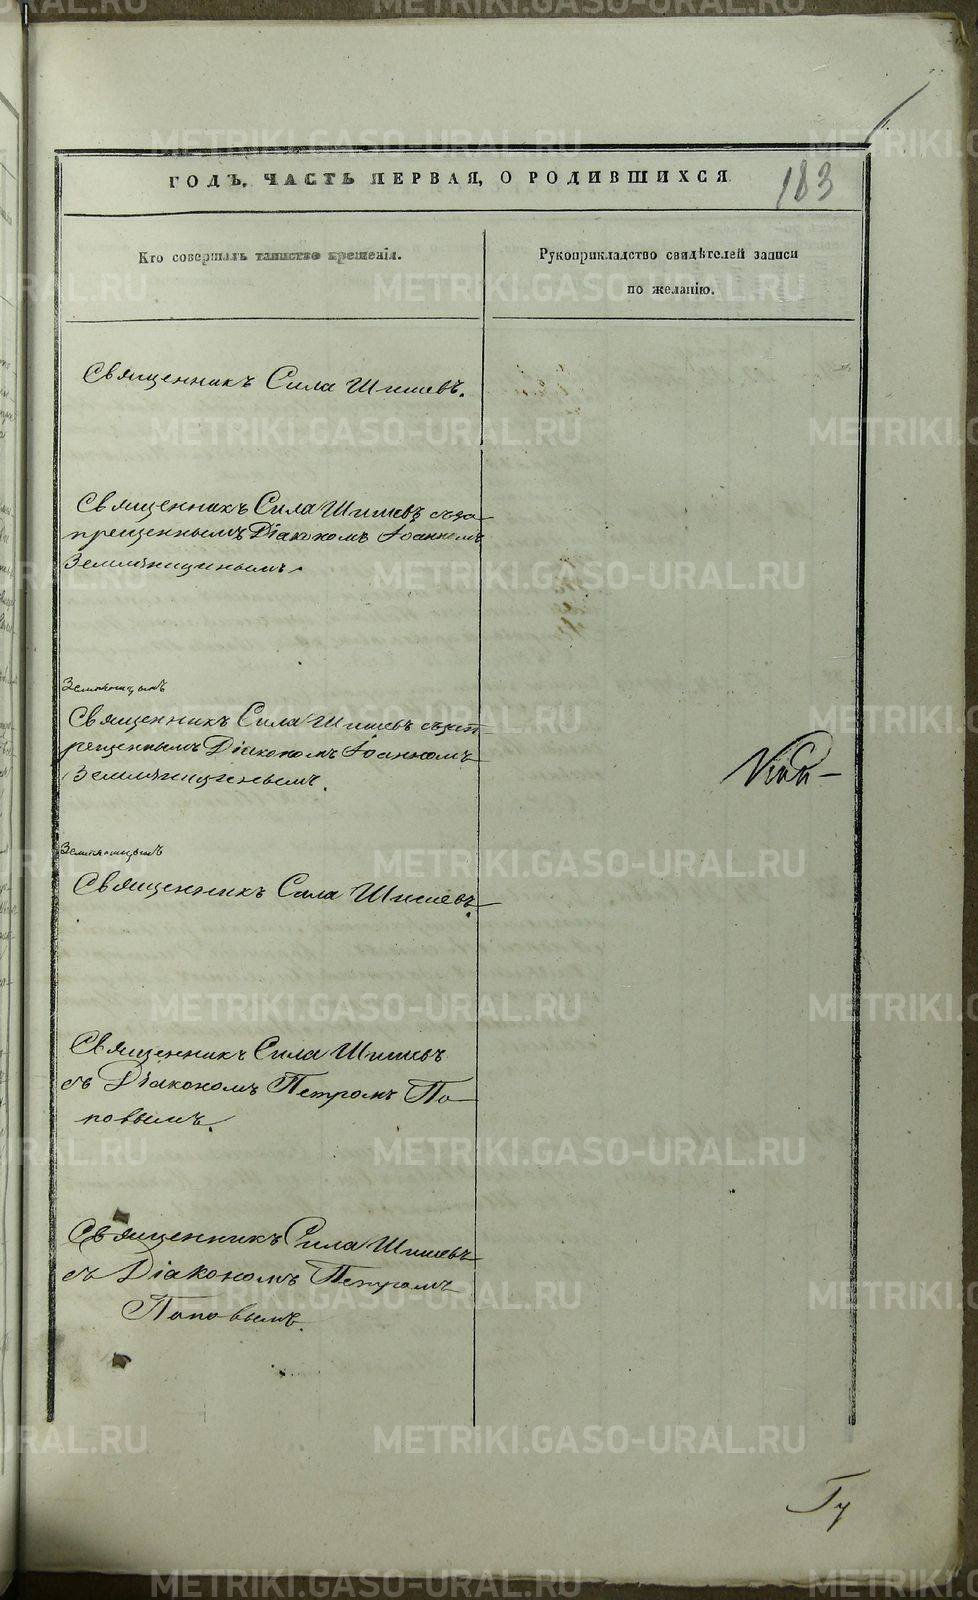 ГОДЪ, ЧАСТЬ ПЕРВАЯ, О РОДИВШИХСЯ
183
Кто совершалъ таинство крещенія.
Рукоприкладство свидѣтелей записи
по желанію.
Священникъ Сила Шишевъ.
Священникъ Сила Шишевъ съ за-
прещеннымъ Діакономъ Іоанномъ
Священникъ Сила Шишевъ съ зап-
рещеннымъ Діакономъ Іоанномъ
Священникъ Сила Шишевъ
Священникъ Сила Шишевъ
съ Діакономъ Петромъ По-
повымъ.
Священникъ Сила Шишевъ
съ Діакономъ Петромъ
Поповымъ.
METRIKI.GASO-URAL.RU